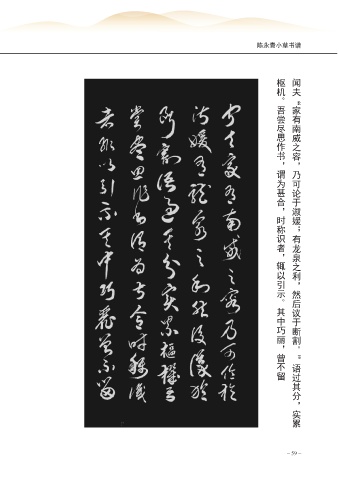 陈永贵小草书谱
闻夫“家有南威之容，乃可论于淑媛；有龙泉之利，然后议于断割。”语过其分，实累
枢机。吾尝尽思作书，谓为甚合，时称识者，辄以引示。其中巧丽，曾不留
闻夫家有南威之容乃可论於
淑媛有龙泉之利然后议於
断割语过其分实累枢机吾
尝尽思作书谓为甚合时称识
者辄以引示其中巧丽曾不留
– 59 –